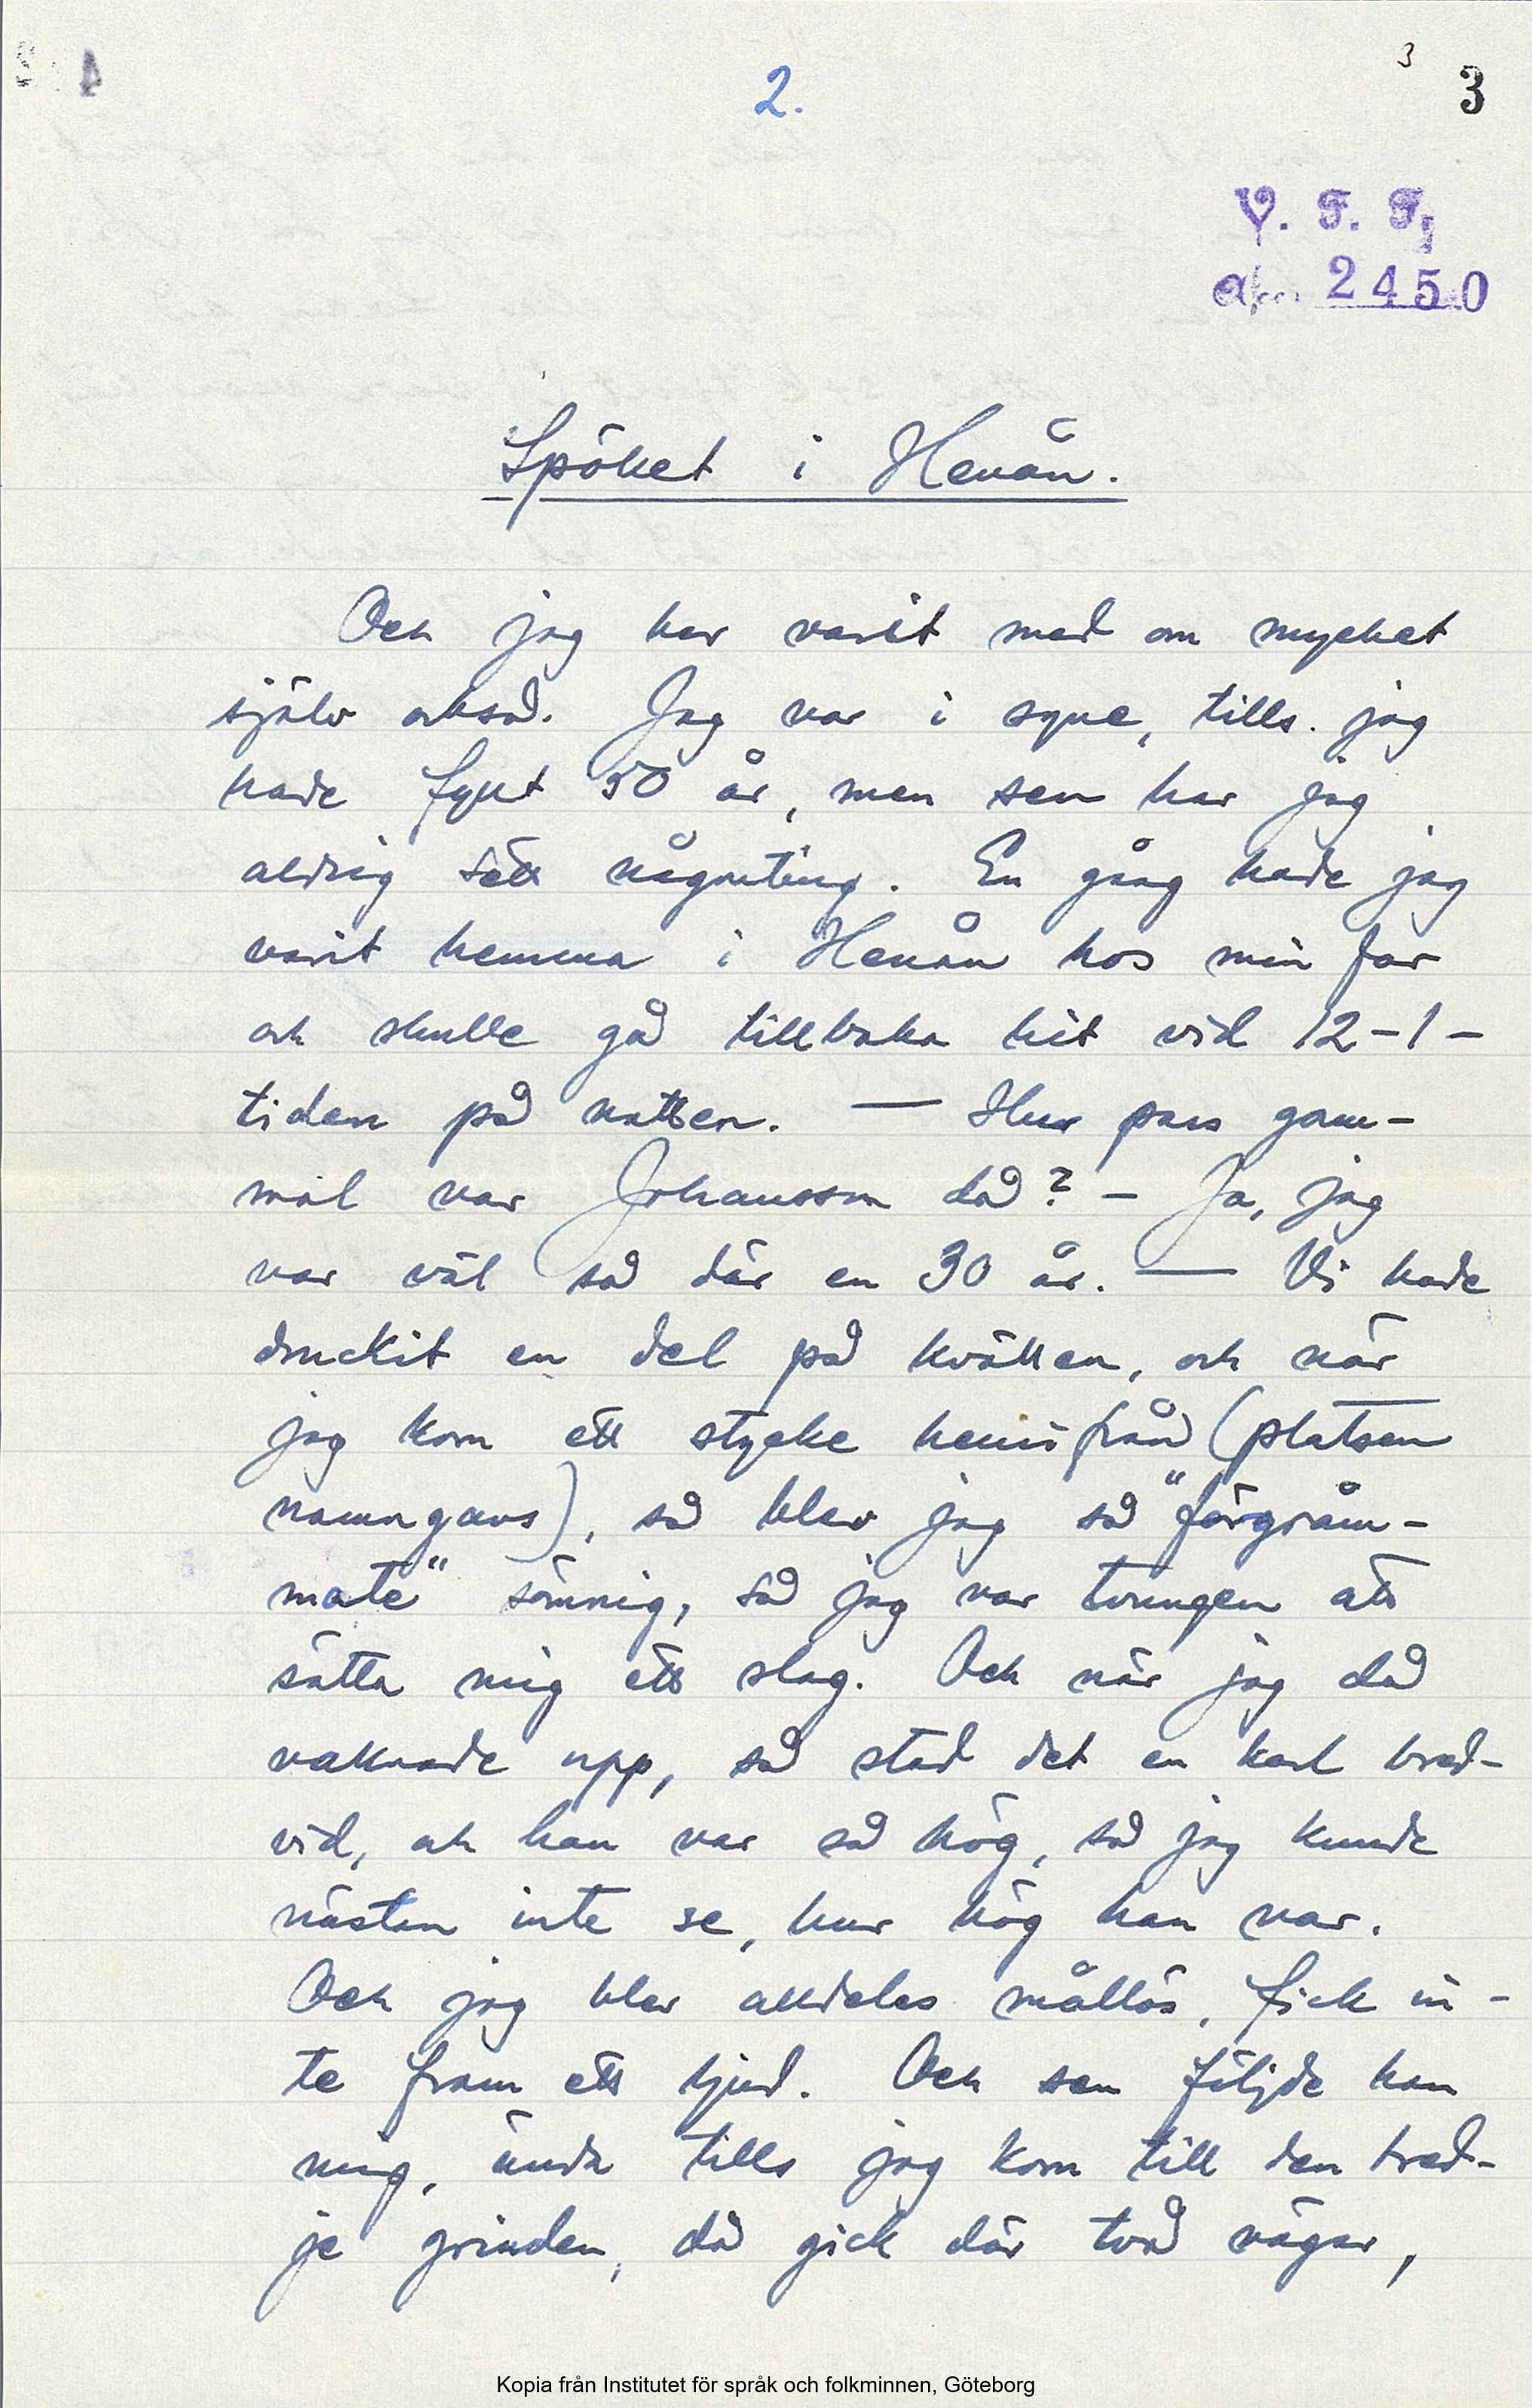 2.
3
3
V. F. F.
acc. 2450
Spöket i Henån.
Och jag har varit med om mycket
själv också. Jag var i syne, tills jag
hade fyllt 50 år, men sen har jag
aldrig sett någonting. En gång hade jag
varit hemma i Henån hos min far
och skulle gå tillbaka hit vid 12-1-
tiden på natten. — Hur pass gam-
mal var Johansson då? - Ja, jag
var väl så där en 30 år. — Vi hade
druckit en del på kvällen, och när
jag kom ett stycke hemifrån (platsen
namngavs), så blev jag så "förgråm-
mate" sömnig, så jag var tvungen att
sätta mig ett slag. Och när jag då
vaknade upp, så stod det en karl bred-
vid, och han var så hög, så jag kunde
nästan inte se, hur hög han var.
Och jag blev alldeles mållös, fick in-
te fram ett ljud. Och sen följde han
mig, ända tills jag kom till den tred-
je grinden, då gick där två vägar,
Kopia från Institutet för språk och folkminnen, Göteborg